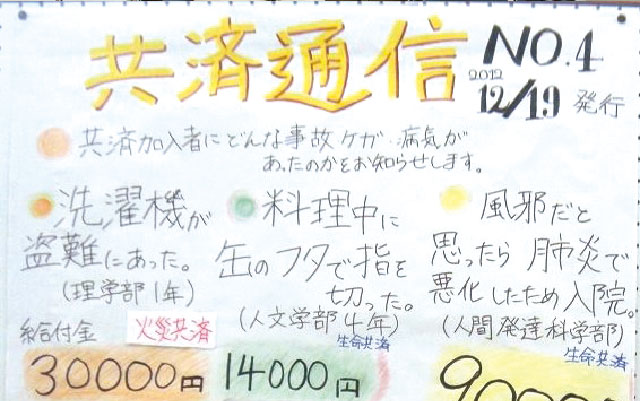 共済通信 NO.4
2012 12/19 発行
共済加入者にどんな事故ケガ・病気が
あったのかをお知らせします。
洗濯機が
盗難にあった。
(理学部1年)
給付金 火災共済
30000円
料理中に
缶のフタで指を
切った。
(人文学部4年)
生命共済
14000円
風邪だと
思ったら肺炎で
悪化したため入院。
(人間発達科学部)
生命共済